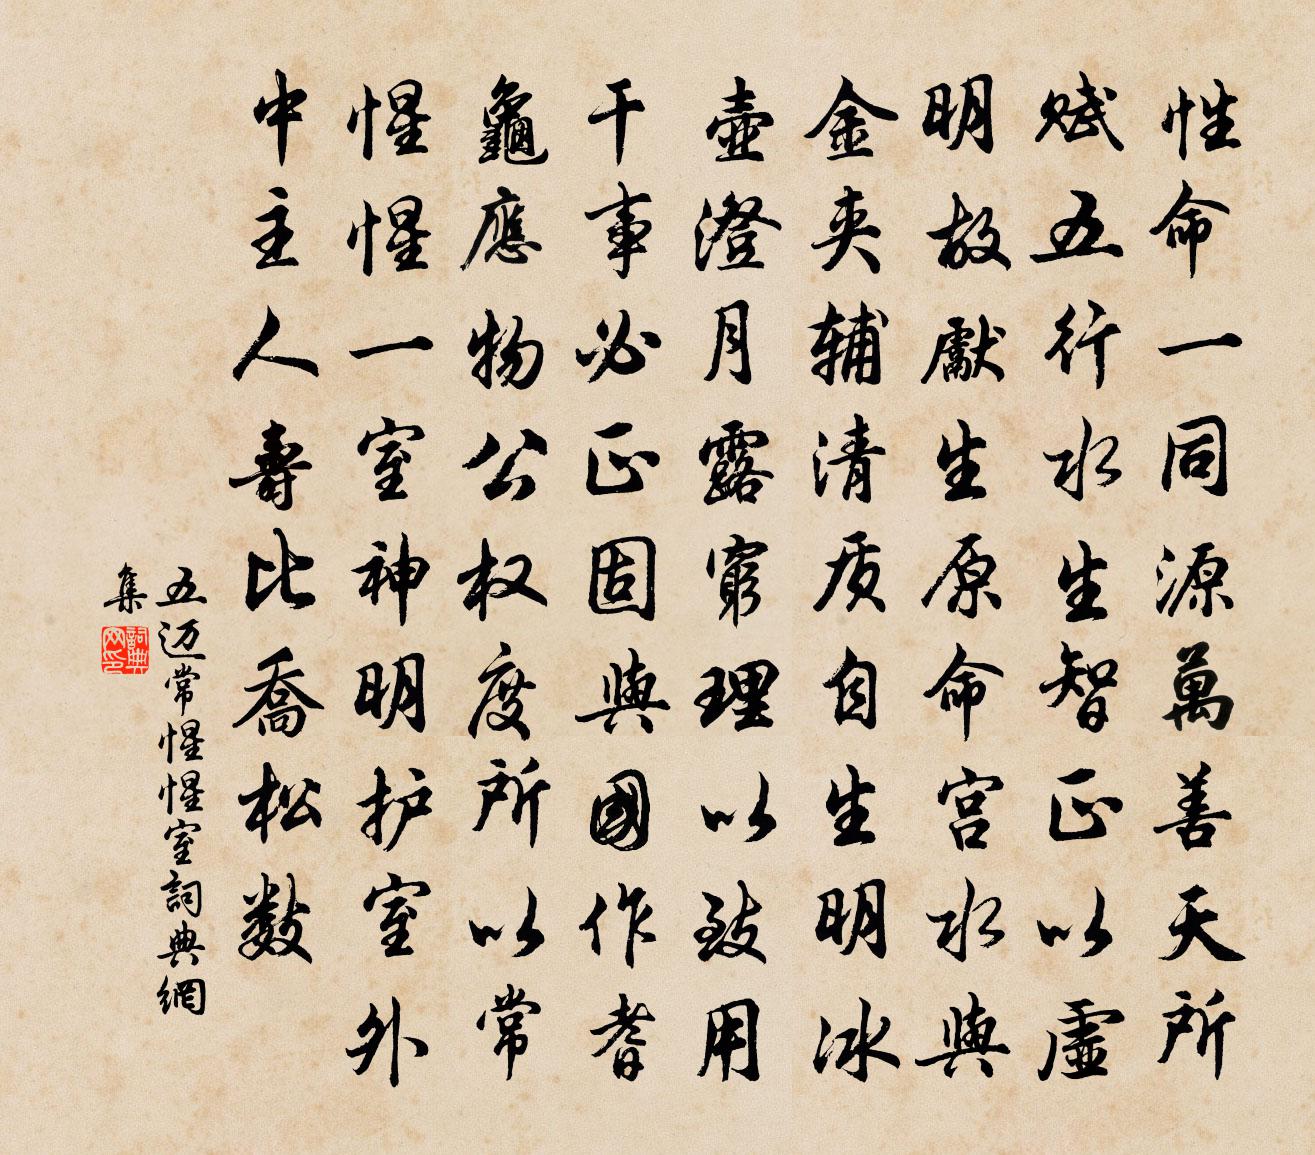 性命一同源萬善天所
賦五行水生智正以虛
明故獻生原命宮水與
金夾辅清质自生明冰
壺澄月露窮理以致用
干事必正固與國作耆
龜應物公权度所以常
惺惺一室神明护室外
中主人壽比喬松数
五迈常惺惺室詞典網
集
詞典网印